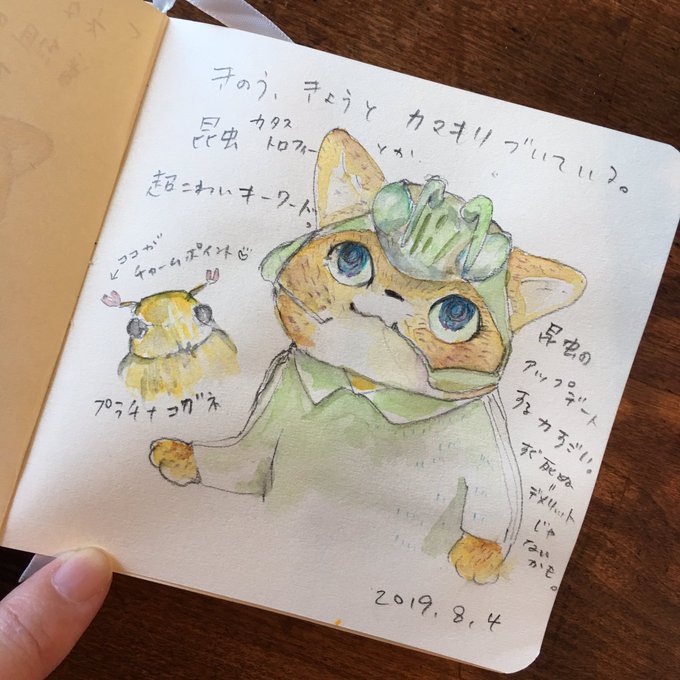 きのう、きょうと カマキリ づいている。
昆虫 カタス
トロフィー とか
超こわいキーワード。
←ココが
チャームポイント♡
プラチナコガネ
昆虫の
アップデート
する力すごい。
すぐ死ぬ
デメリット
じゃ
ない
かも。
2019.8.4